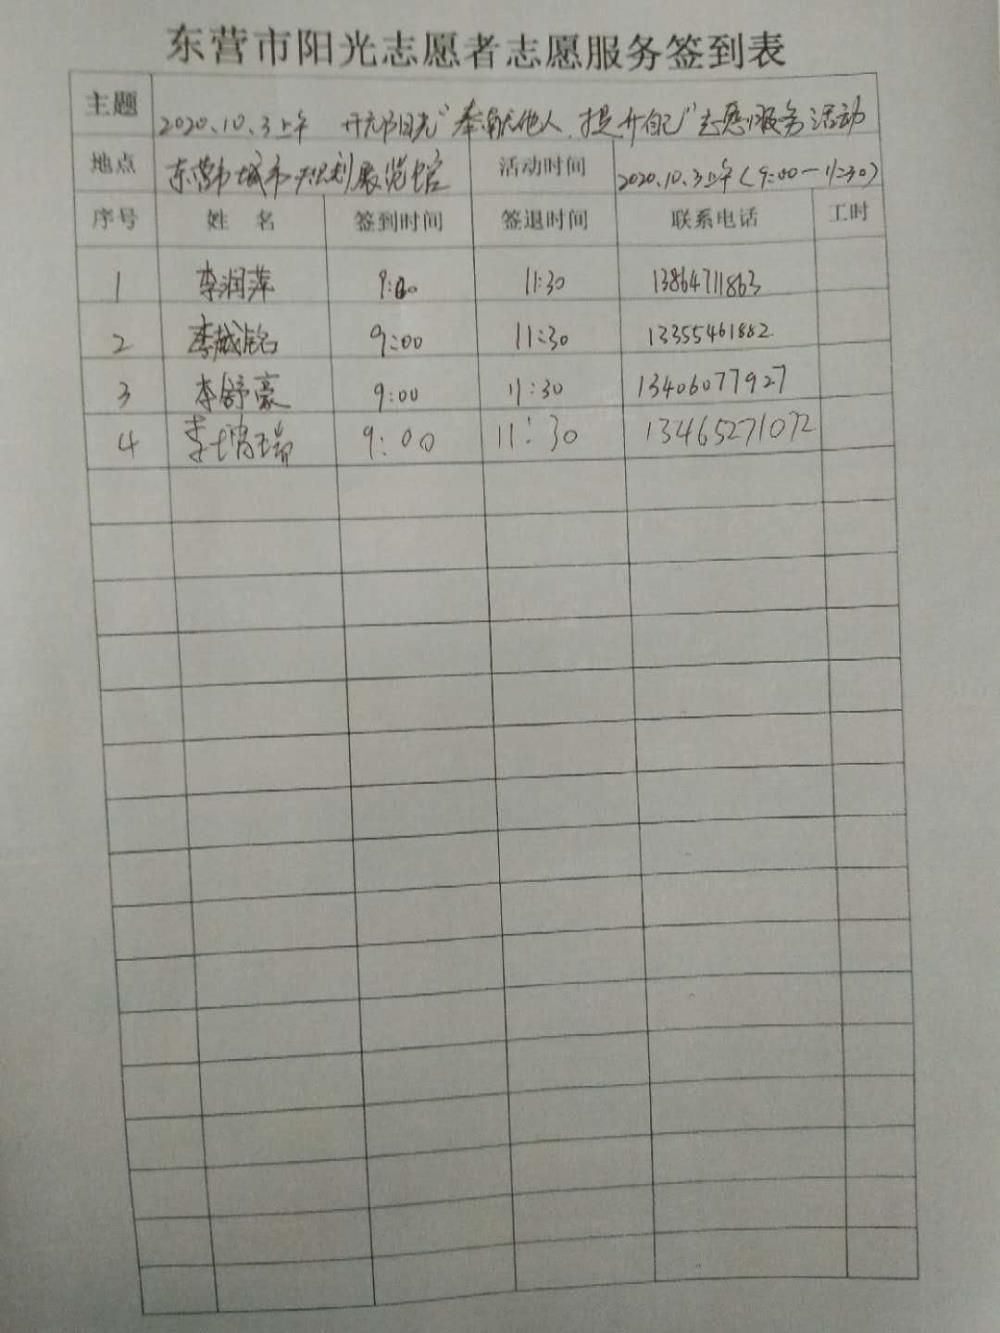 东营市阳光志愿者志愿服务签到表
主题 2020.10.3上午 阳光"奉献他人、提升自己"志愿服务活动
地点 东营市城市规划展览馆 活动时间 2020.10.3上午(9:00-11:30)
序号 姓 名 签到时间 签退时间 联系电话 工时
1 李润萍 9:00 11:30 13864711863
2 李铭 9:00 11:30 13355461882
3 李舒豪 9:00 11:30 13406077927
4 李 9:00 11:30 13465271072